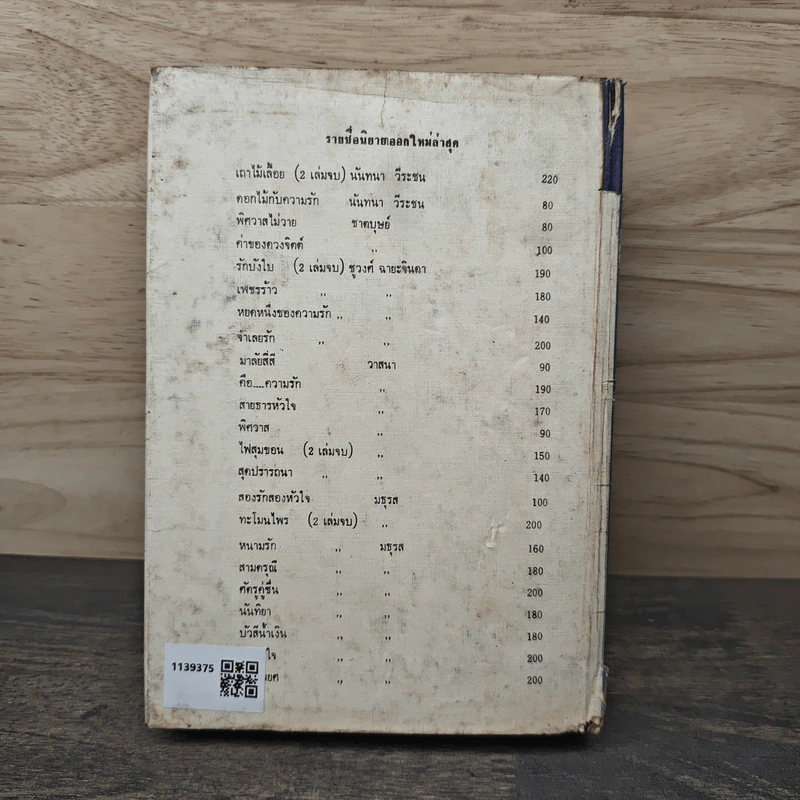 รายชื่อนิยายออกใหม่ล่าสุด
เถาไม้เลื้อย (2 เล่มจบ) นันทนา วีระชน 220
ดอกไม้กับความรัก นันทนา วีระชน 80
พิศวาสไม่วาย ชาตบุษย์ 80
ค่าของดวงจิตต์ ,, 100
รักบังใบ (2 เล่มจบ) ชูวงศ์ ฉายะจินดา 190
เพชรร้าว ,, ,, 180
หยดหนึ่งของความรัก ,, ,, 140
จำเลยรัก ,, ,, 200
มาลัยสี่สี วาสนา 90
คือ....ความรัก ,, 190
สายธารหัวใจ ,, 170
พิศวาส ,, 90
ไฟสุมขอน (2 เล่มจบ) ,, 150
สุดปรารถนา ,, ,, 140
สองรักสองหัวใจ มธุรส 100
ทะโมนไพร (2 เล่มจบ) ,, 200
หนามรัก ,, มธุรส 160
สามดรุณี ,, ,, 180
ศัตรูคู่ชื่น ,, ,, 200
นันทิยา ,, ,, 180
บัวสีน้ำเงิน ,, ,, 180
ใจ ,, ,, 200
ยศ ,, ,, 200
1139375